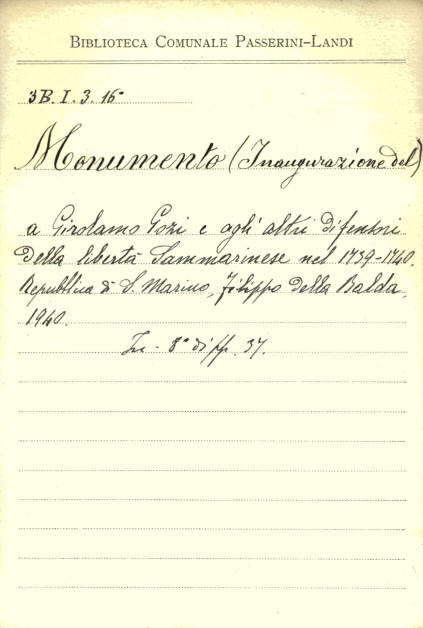 BIBLIOTECA COMUNALE PASSERINI-LANDI
3B. I. 3. 16
Monumento (Inaugurazione del)
a Girolamo Gozi e agli altri difensori
della libertà Sammarinese nel 1739-1740.
Repubblica di S. Marino, Filippo Della Balda,
1940.
In - 8° di pp. 37.